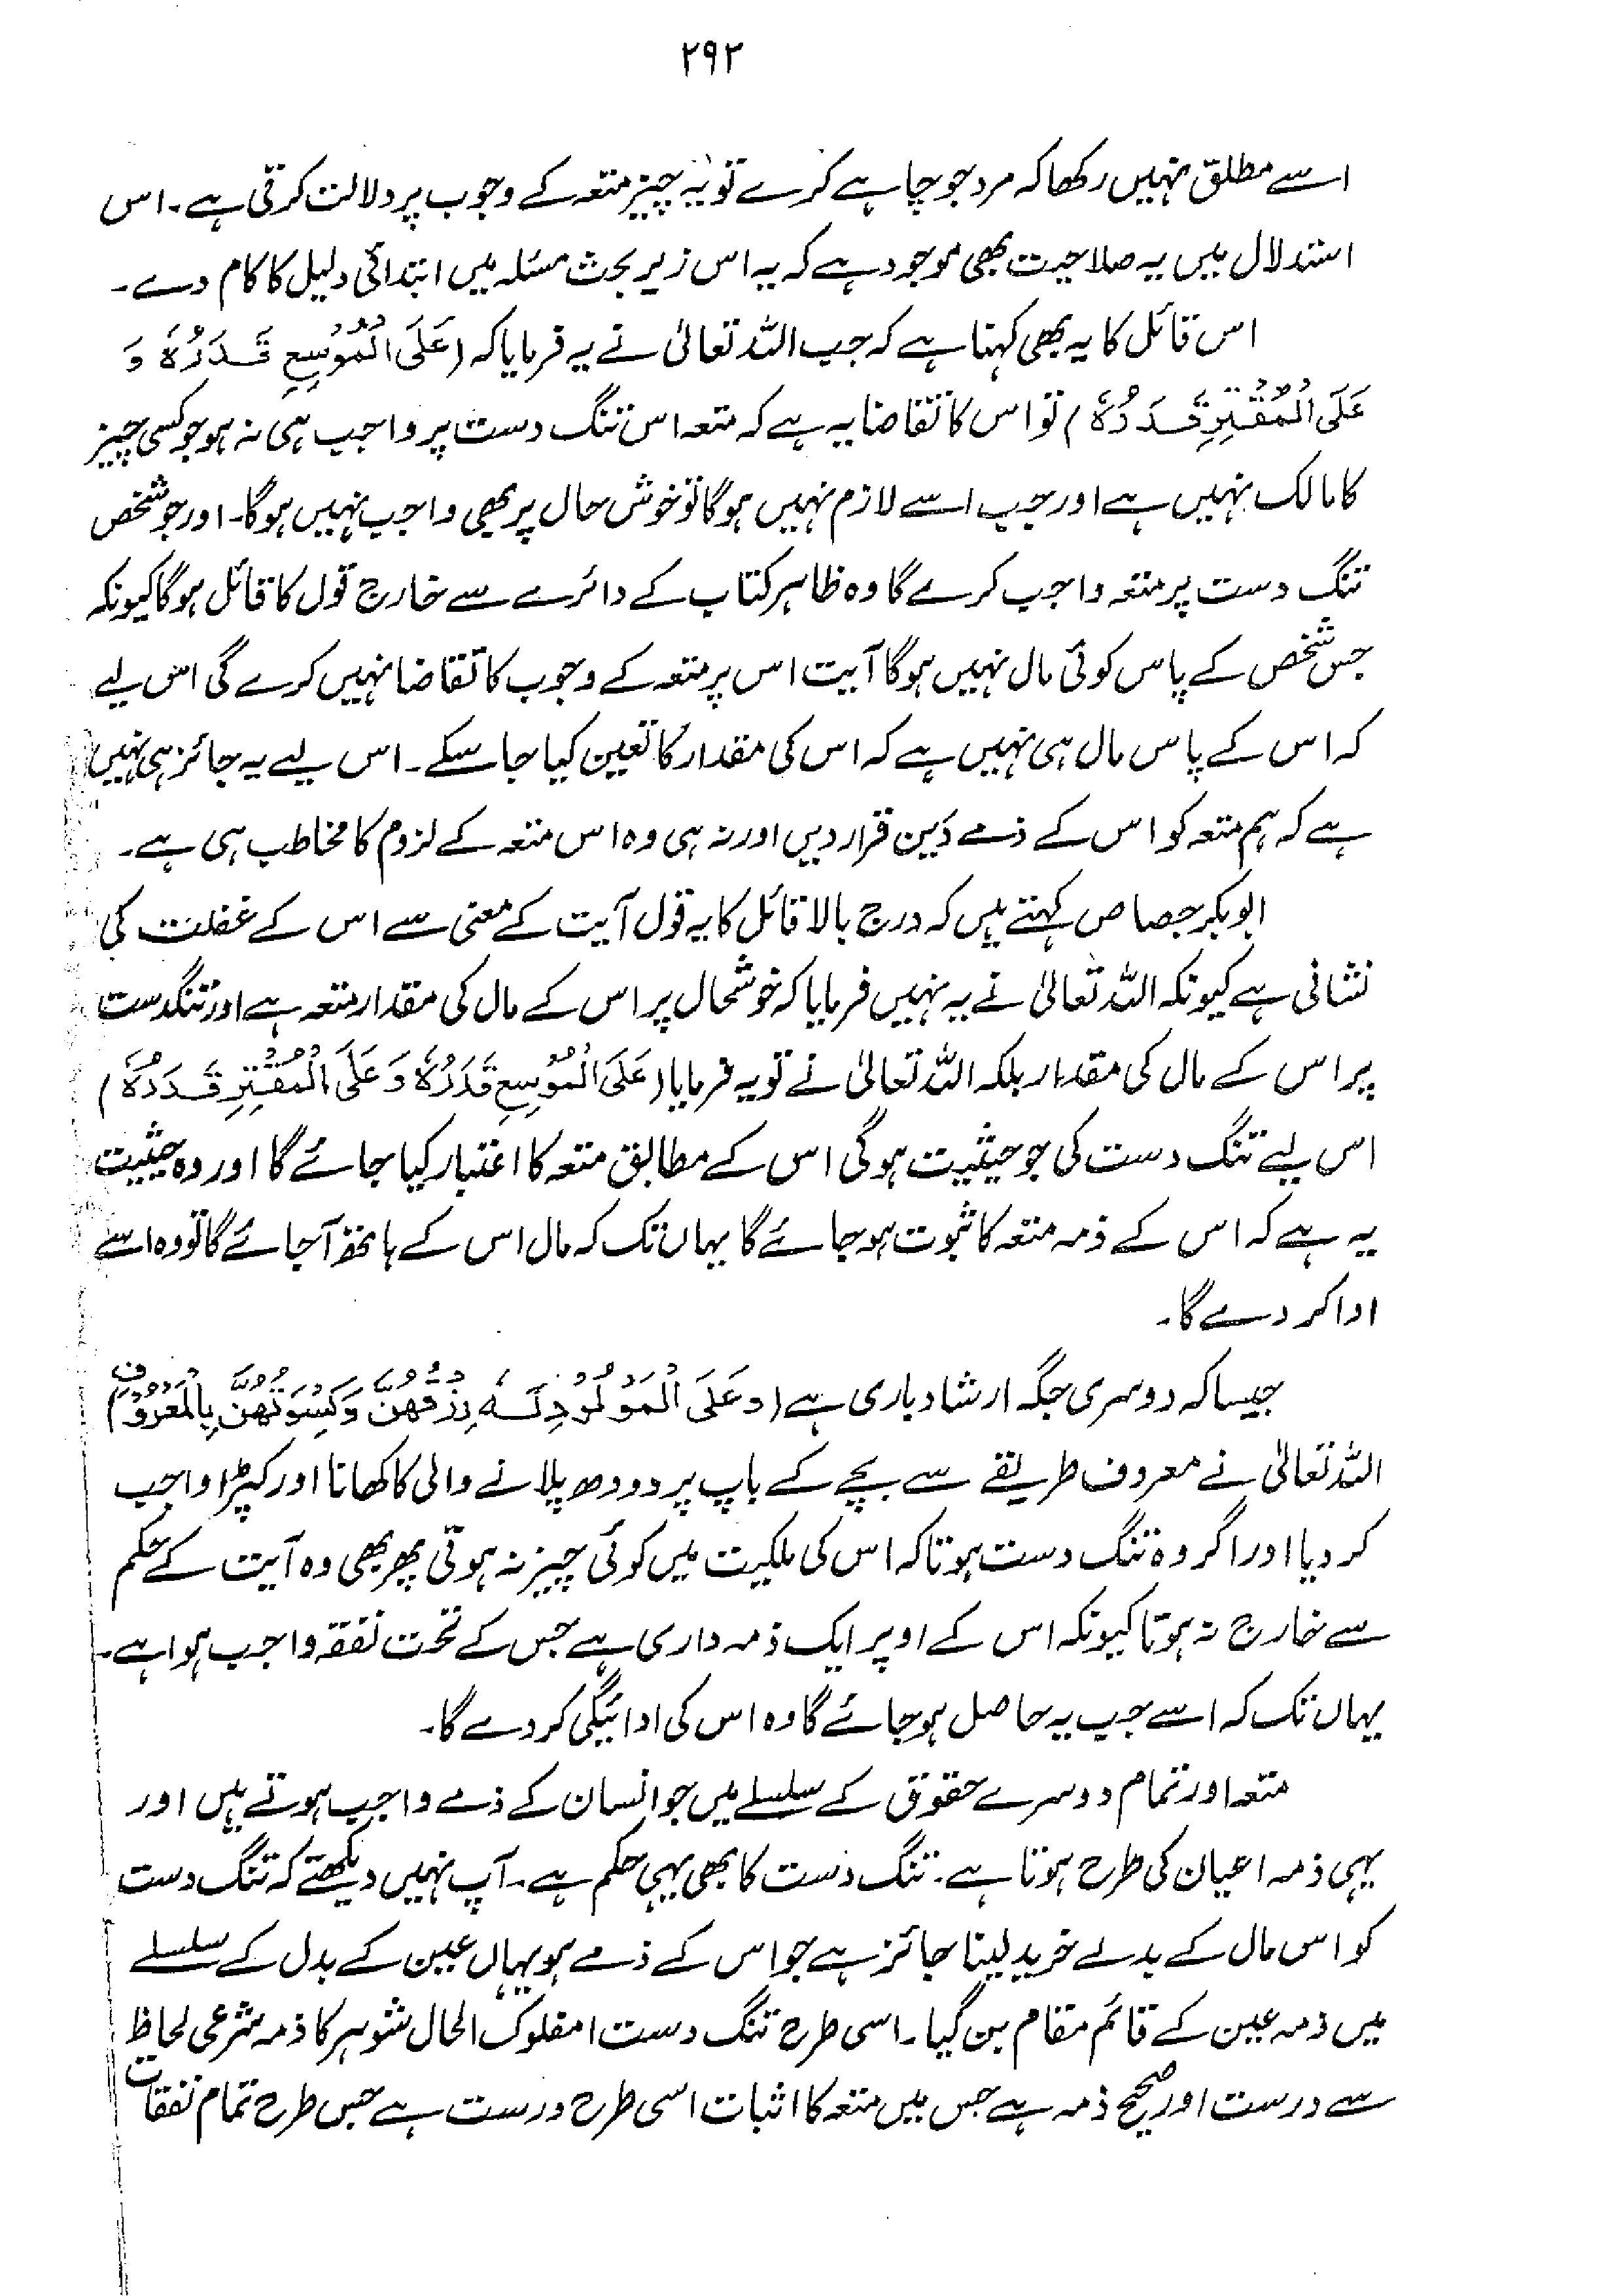 ۲۹۲
اسے مطلق نہیں رکھا کہ مرد جو چاہے کرے تو یہ چیز متعہ کے وجوب پر دلالت کرتی ہے۔ اس
استدلال میں یہ صلاحیت بھی موجود ہے کہ یہ اس زیر بحث مسئلہ میں ابتدائی دلیل کا کام دے۔
اس قائل کا یہ بھی کہنا ہے کہ جب اللہ تعالیٰ نے یہ فرمایا کہ (عَلَى الْمُوْسِعِ قَدَرُهٗ وَ
عَلَى الْمُقْتِرِ قَدَرُهٗ) تو اس کا تقاضا یہ ہے کہ متعہ اس تنگ دست پر واجب ہی نہ ہو جو کسی چیز
کا مالک نہیں ہے اور جب اسے لازم نہیں ہوگا تو خوش حال پر بھی واجب نہیں ہوگا۔ اور جو شخص
تنگ دست پر متعہ واجب کرے گا وہ ظاہر کتاب کے دائرے سے خارج قول کا قائل ہوگا کیونکہ
جس شخص کے پاس کوئی مال نہیں ہوگا آیت اس پر متعہ کے وجوب کا تقاضا نہیں کرے گی اس لیے
کہ اس کے پاس مال ہی نہیں ہے کہ اس کی مقدار کا تعین کیا جا سکے۔ اس لیے یہ جائز ہی نہیں
ہے کہ ہم متعہ کو اس کے ذمے دَین قرار دیں اور نہ ہی وہ اس متعہ کے لزوم کا مخاطب ہی ہے۔
ابوبکر جصاص کہتے ہیں کہ درج بالا قائل کا یہ قول آیت کے معنی سے اس کے غفلت کی
نشانی ہے کیونکہ اللہ تعالیٰ نے یہ نہیں فرمایا کہ خوشحال پر اس کے مال کی مقدار متعہ ہے اور تنگدست
پر اس کے مال کی مقدار بلکہ اللہ تعالیٰ نے تو یہ فرمایا (عَلَى الْمُوْسِعِ قَدَرُهٗ وَ عَلَى الْمُقْتِرِ قَدَرُهٗ)
اس لیے تنگ دست کی جو حیثیت ہوگی اس کے مطابق متعہ کا اعتبار کیا جائے گا اور وہ حیثیت
یہ ہے کہ اس کے ذمہ متعہ کا ثبوت ہو جائے گا یہاں تک کہ مال اس کے ہاتھ آجائے گا تو وہ اسے
ادا کر دے گا۔
جیسا کہ دوسری جگہ ارشاد باری ہے (وَعَلَى الْمَوْلُوْدِ لَهٗ رِزْقُهُنَّ وَكِسْوَتُهُنَّ بِالْمَعْرُوْفِ)
اللہ تعالیٰ نے معروف طریقے سے بچے کے باپ پر دودھ پلانے والی کا کھانا اور کپڑا واجب
کر دیا اور اگر وہ تنگ دست ہوتا کہ اس کی ملکیت میں کوئی چیز نہ ہوتی پھر بھی وہ آیت کے حکم
سے خارج نہ ہوتا کیونکہ اس کے اوپر ایک ذمہ داری ہے جس کے تحت نفقہ واجب ہوا ہے۔
یہاں تک کہ اسے جب یہ حاصل ہو جائے گا وہ اس کی ادائیگی کر دے گا۔
متعہ اور تمام دوسرے حقوق کے سلسلے میں جو انسان کے ذمے واجب ہوتے ہیں اور
یہی ذمہ اعیان کی طرح ہوتا ہے۔ تنگ دست کا بھی یہی حکم ہے۔ آپ نہیں دیکھتے کہ تنگ دست
کو اس مال کے بدلے خرید لینا جائز ہے جو اس کے ذمے ہو یہاں عین کے بدل کے سلسلے
میں ذمہ عین کے قائم مقام بن گیا۔ اسی طرح تنگ دست امفلوک الحال شوہر کا ذمہ شرعی لحاظ
سے درست اور صحیح ذمہ ہے جس میں متعہ کا اثبات اسی طرح درست ہے جس طرح تمام نفقات